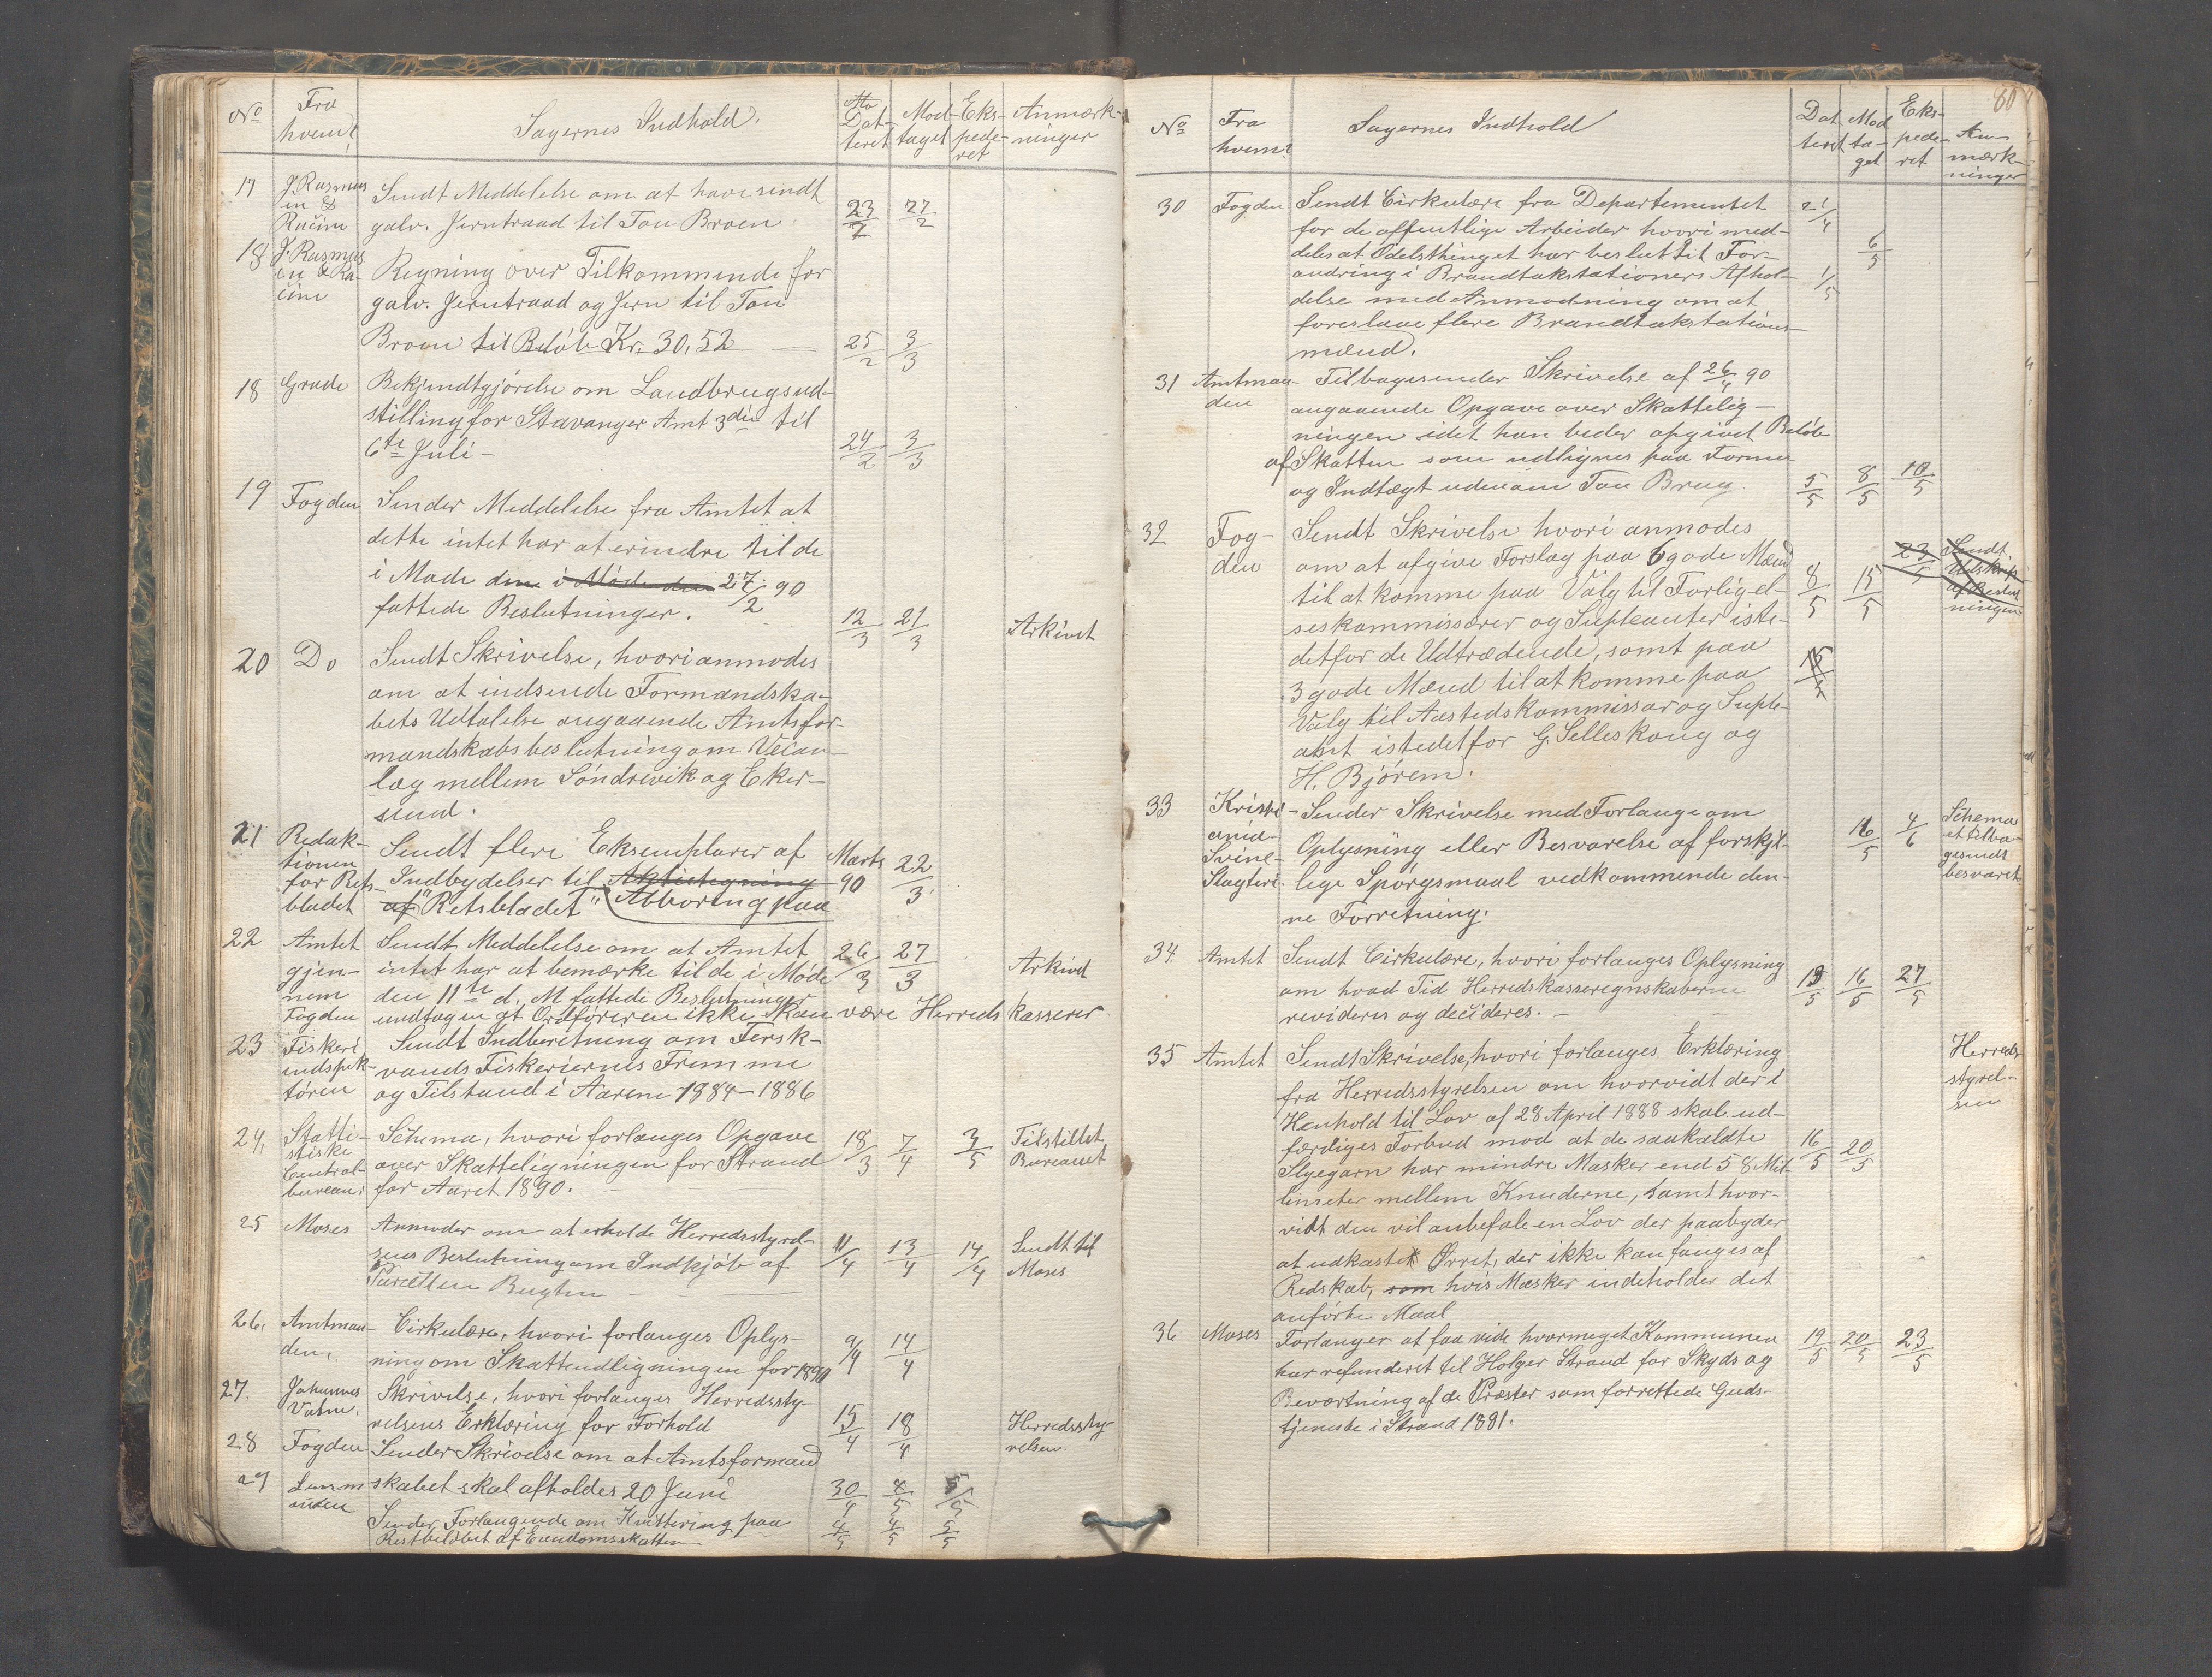 No Fra hvem? Sagernes Indhold. Dateret Modtaget Ekspederet Anmærkninger
17 J. Rasmussen & Racine Sendt Meddelelse om at have sendt
galv. Jerntraad til Tou Broen. 23/2 27/2
18 J. Rasmussen & Racine Regning over Tilkommende for
galv. Jerntraad og Jern til Tou
Broen til Beløb Kr. 30,52 25/2 3/3
18 Grude Bekjendtgjørelse om Landbrugsud-
stilling for Stavanger Amt 3die til
6te Juli - 24/2 3/3
19 Fogden Sender Meddelelse fra Amtet at
dette intet har at erindre til de
i Møde den i Møde den 27/2 90
fattede Beslutninger. 12/3 21/3 Arkivet
20 Do Sendt Skrivelse, hvori anmodes
om at indsende Formandska-
bets Udtalelse angaaende Amtsfor-
mandskabsbeslutning om Veian-
læg mellem Søndrevik og Eker-
sund.
21 Redak- Sendt flere Eksemplarer af Marts 22/3
tionen for Rets- Indbydelser til Aktietegning 90
bladet af "Retsbladet" Abboring paa
22 Amtet Sendt Meddelelse om at Amtet 26/3 27/3
gjen- intet har at bemærke til de i Møde Arkivet
nem den 11te d. M fattede Beslutninger
Fogden undtagen at Ordføreren ikke kan være Herredskasserer
23 Fiskeri Sendt Indberetning om Fersk-
indspek- vands Fiskeriernes Fremme
tøren og Tilstand i Aarene 1884-1886
24, Statti- Schema, hvori forlanges Opgave 18/3 7/4 3/5 Tilstillet
stiske Central- over Skatteligningen for Strand Bureauet
bureau: for Aaret 1890.
25 Moses Anmoder om at erholde Herredsstyrel-
sens Beslutning om Indkjøb af 11/4 13/4 14/4 Sendt til Moses
Parcellen Bugten
26, Amtman- Cirkulære, hvori forlanges Oplys-
den, ning om Skatteudligningen for 1890 9/4 14/4
27. Johannes Skrivelse, hvori forlanges Herredssty-
Vatne. relsens Erklæring for Forhold 15/4 18/4 Herredssty-
relsen.
28 Fogden Sender Skrivelse om at Amtsformand
skabet skal afholdes 20 Juni 30/4 4/5 5/5
29 Lensm Sender Forlangende om Kvittering paa
anden Restbeløbet af Eiendomsskatten 4/5 4/5 5/5
80
No Fra hvem? Sagernes Indhold Dateret Modtaget Ekspederet Anmærkninger
30 Fogden Sendt Cirkulære fra Departementet 21/4
for de offentlige Arbeider hvori med-
deles at Odelsthinget har besluttet For- 6/5
andring i Brandtakstationers Afhol- 1/5
delse med Anmodning om at
foreslaae flere Brandtakstations-
mænd.
31 Amtman- Tilbagesender Skrivelse af 26/4 90
den angaaende Opgave over Skattelig-
ningen idet han beder opgivet Beløb
af Skatten som udlignes paa Formue
og Indtægt udenom Tou Brug. 5/5 8/5 10/5
32 Fog- Sendt Skrivelse hvori anmodes
den om at afgive Forslag paa 6 gode Mænd 23/5 Sendt Udskrip af Beslut ningen
til at komme paa Valg til Forligel- 8/5 15/5
seskommissærer og Supleanter iste-
detfor de Udtrædende, samt paa 15/5
3 gode Mænd til at komme paa
Valg til Aastedskommissar og Suple-
ant istedetfor G. Selleskoug og
H. Bjørem.
33 Kristi- Sender Skrivelse med Forlange om
ania- Oplysning eller Besvarelse af forskjel- 16/5 4/6 Schema et tilba-
Svine- Slagteri. lige Spørgsmaal vedkommende den- gesendt besvaret
ne Forretning.
34. Amtet Sendt Cirkulære, hvori forlanges Oplysning
om hvad Tid Herredskasseregnskaberne 13/5 16/5 27/5
revideres og decideres. -
35 Amtet Sendt Skrivelse, hvori forlanges Erklæring Herreds
fra Herredsstyrelsen om hvorvidt der i styrel-
Henhold til Lov af 28 April 1888 skal ud- sen
færdiges Forbud mod at de saakaldte 16/5 20/5
Slyegarn har mindre Masker end 58 Mil-
limeter mellem Knuderne, samt hvor-
vidt den vil anbefale en Lov der paabyder
at udkaste Ørret, der ikke kan fanges af
Redskab, som hvis Masker indeholder det
anførte Maal
36 Moses Forlanger at faa vide hvormeget Kommunen 19/5 20/5 23/5
har refunderet til Holger Strand for Skyds og
Beværtning af de Præster som forrettede Guds-
tjeneste i Strand 1881.